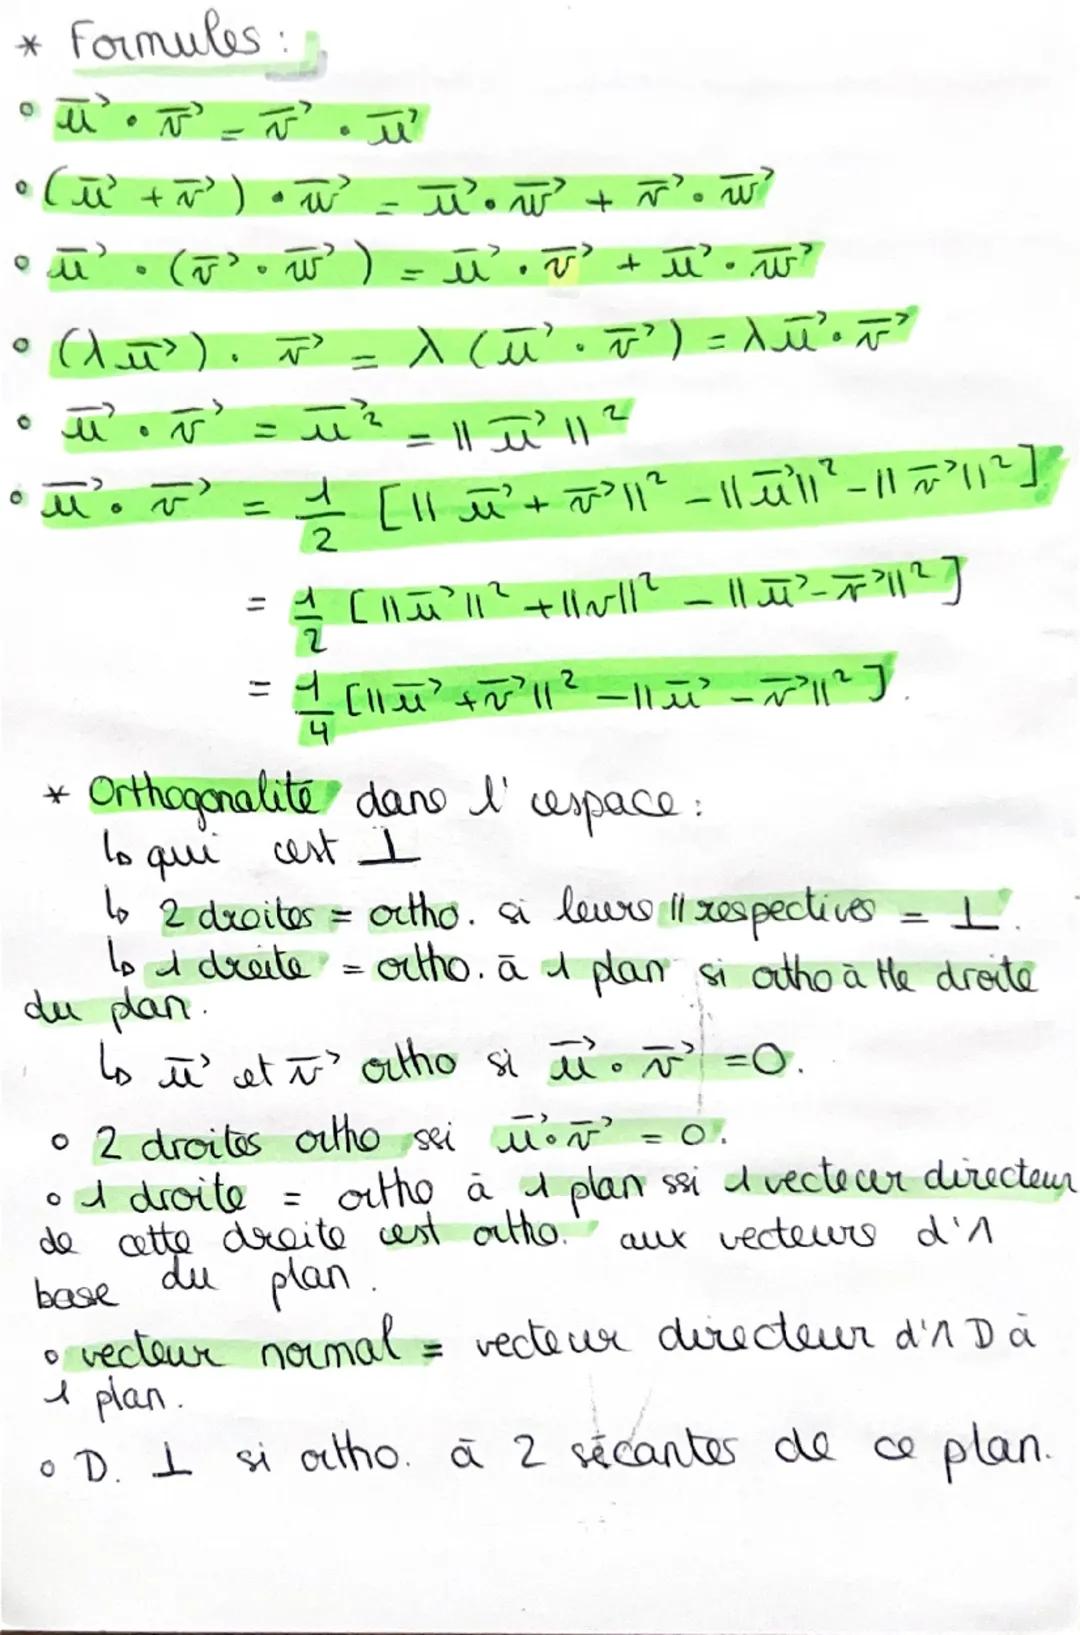 * Formules :
• u⃗ • v⃗ = v⃗ • u⃗
• (u⃗ + v⃗) • w⃗ = u⃗ • w⃗ + v⃗ • w⃗
• u⃗ • (v⃗ • w⃗) = u⃗ • v⃗ + u⃗ • w⃗
• (λu⃗) • v⃗ = λ(u⃗ • v⃗) = λu⃗ • v⃗
• u⃗ • v⃗ = u⃗² = ||u⃗||²
• u⃗ • v⃗ = 1/2 [||u⃗ + v⃗||² - ||u⃗||² - ||v⃗||²]
= 1/2 [||u⃗||² + ||v||² - ||u⃗ - v⃗||²]
= 1/4 [||u⃗ + v⃗||² - ||u⃗ - v⃗||²].
* Orthogonalité dans l'espace :
↳ qui est ⊥
↳ 2 droites = ortho. si leurs // respectives = ⊥.
↳ 1 droite = ortho. à 1 plan si ortho à tte droite
du plan.
↳ u⃗ et v⃗ ortho si u⃗ • v⃗ = 0.
• 2 droites ortho ssi u⃗ • v⃗ = 0.
• 1 droite = ortho à 1 plan ssi 1 vecteur directeur
de cette droite est ortho. aux vecteurs d'1
base du plan.
• vecteur normal = vecteur directeur d'1 D à
1 plan.
• D. ⊥ si ortho. à 2 sécantes de ce plan.